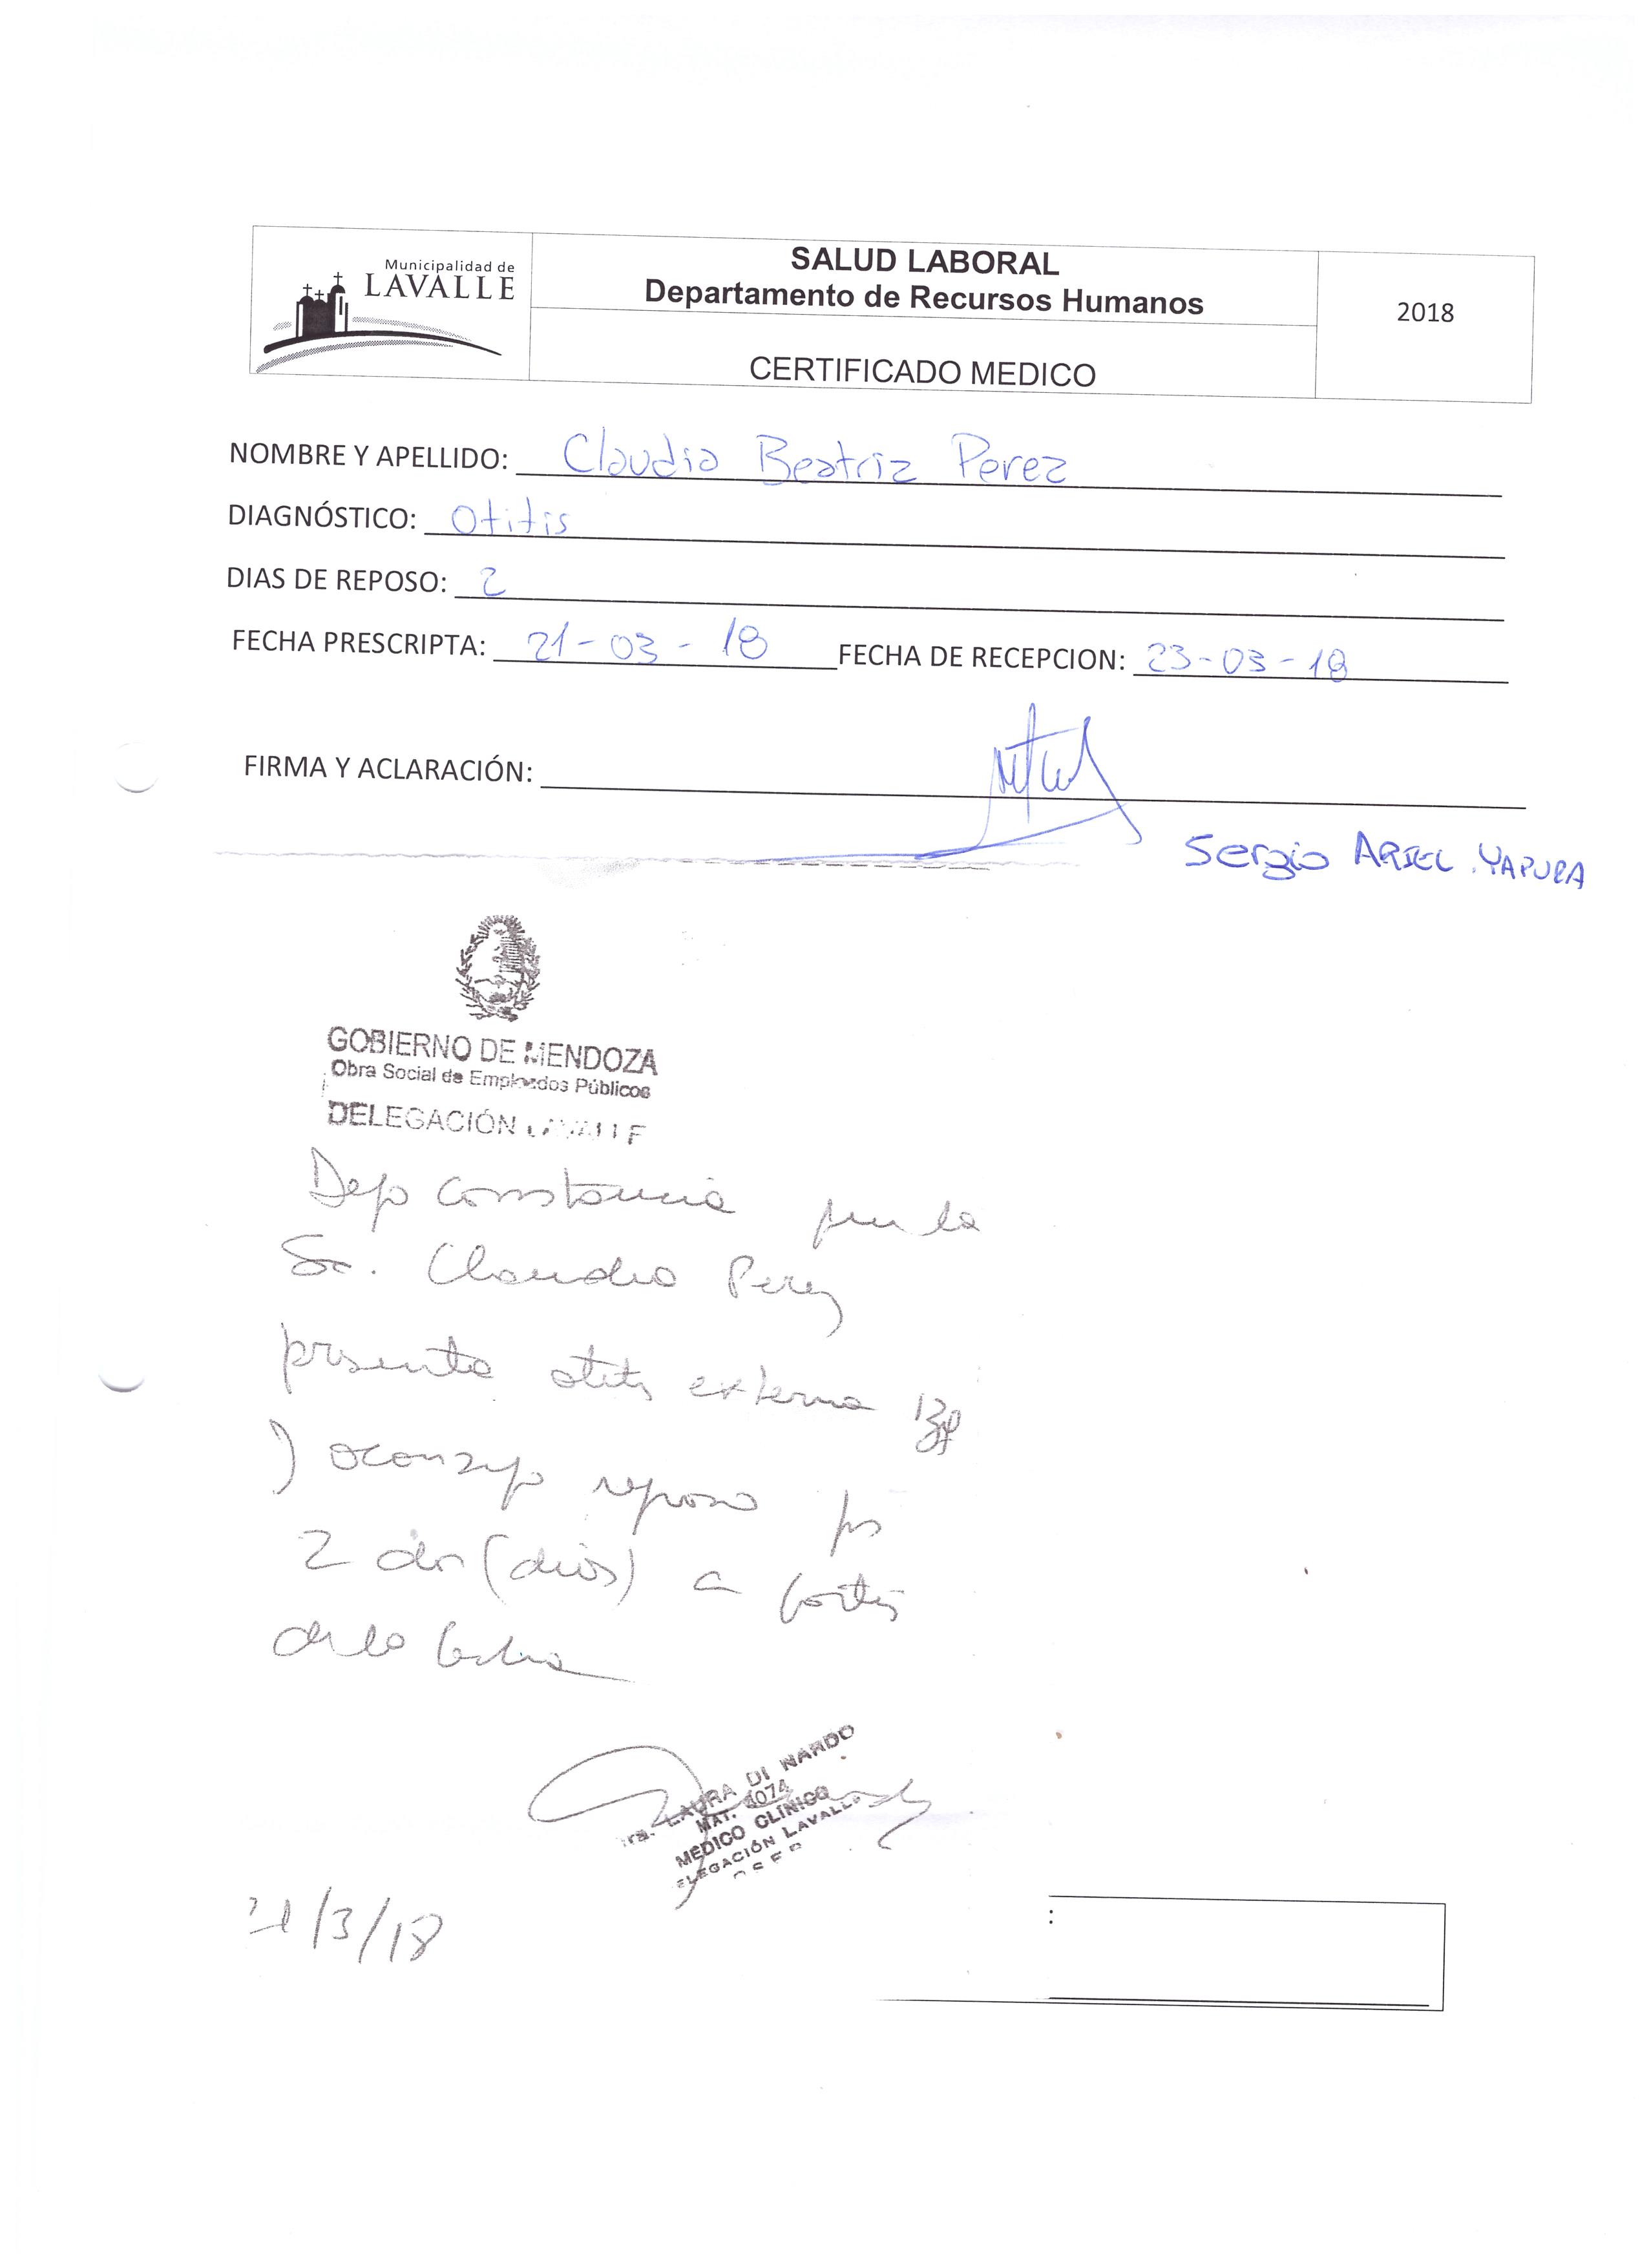 Municipalidad de
LAVALLE
SALUD LABORAL
Departamento de Recursos Humanos
CERTIFICADO MEDICO
2018
NOMBRE Y APELLIDO: Claudia Beatriz Perez
DIAGNÓSTICO: Otitis
DIAS DE REPOSO: 2
FECHA PRESCRIPTA: 21-03-18 FECHA DE RECEPCION: 23-03-18
FIRMA Y ACLARACIÓN:
Sergio ARIEL YAPURA
GOBIERNO DE MENDOZA
Obra Social de Empleados Públicos
DELEGACIÓN LAVALLE
Dejo constancia que la
Sra. Claudia Perez
presenta otitis externa izq
y aconsejo reposo por
2 días (dos) a partir
de la fecha
Dra. LAURA DI NARDO
MAT.
MEDICO CLÍNICO
DELEGACIÓN LAVALLE
OSEP
21/3/18
: